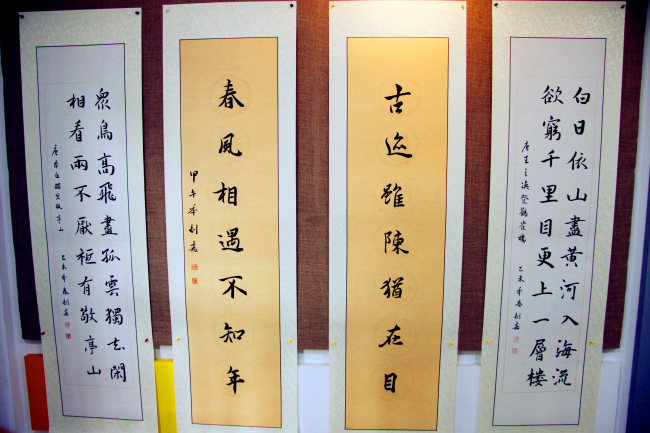 白日依山盡黄河入海流
欲窮千里目更上一層楼
唐王之渙登鸛雀樓 乙未年春
古迹雖陳猶在目
春風相遇不知年
甲午年
衆鳥高飛盡孤雲獨去閑
相看兩不厭衹有敬亭山
唐李白獨坐敬亭山 乙未年春